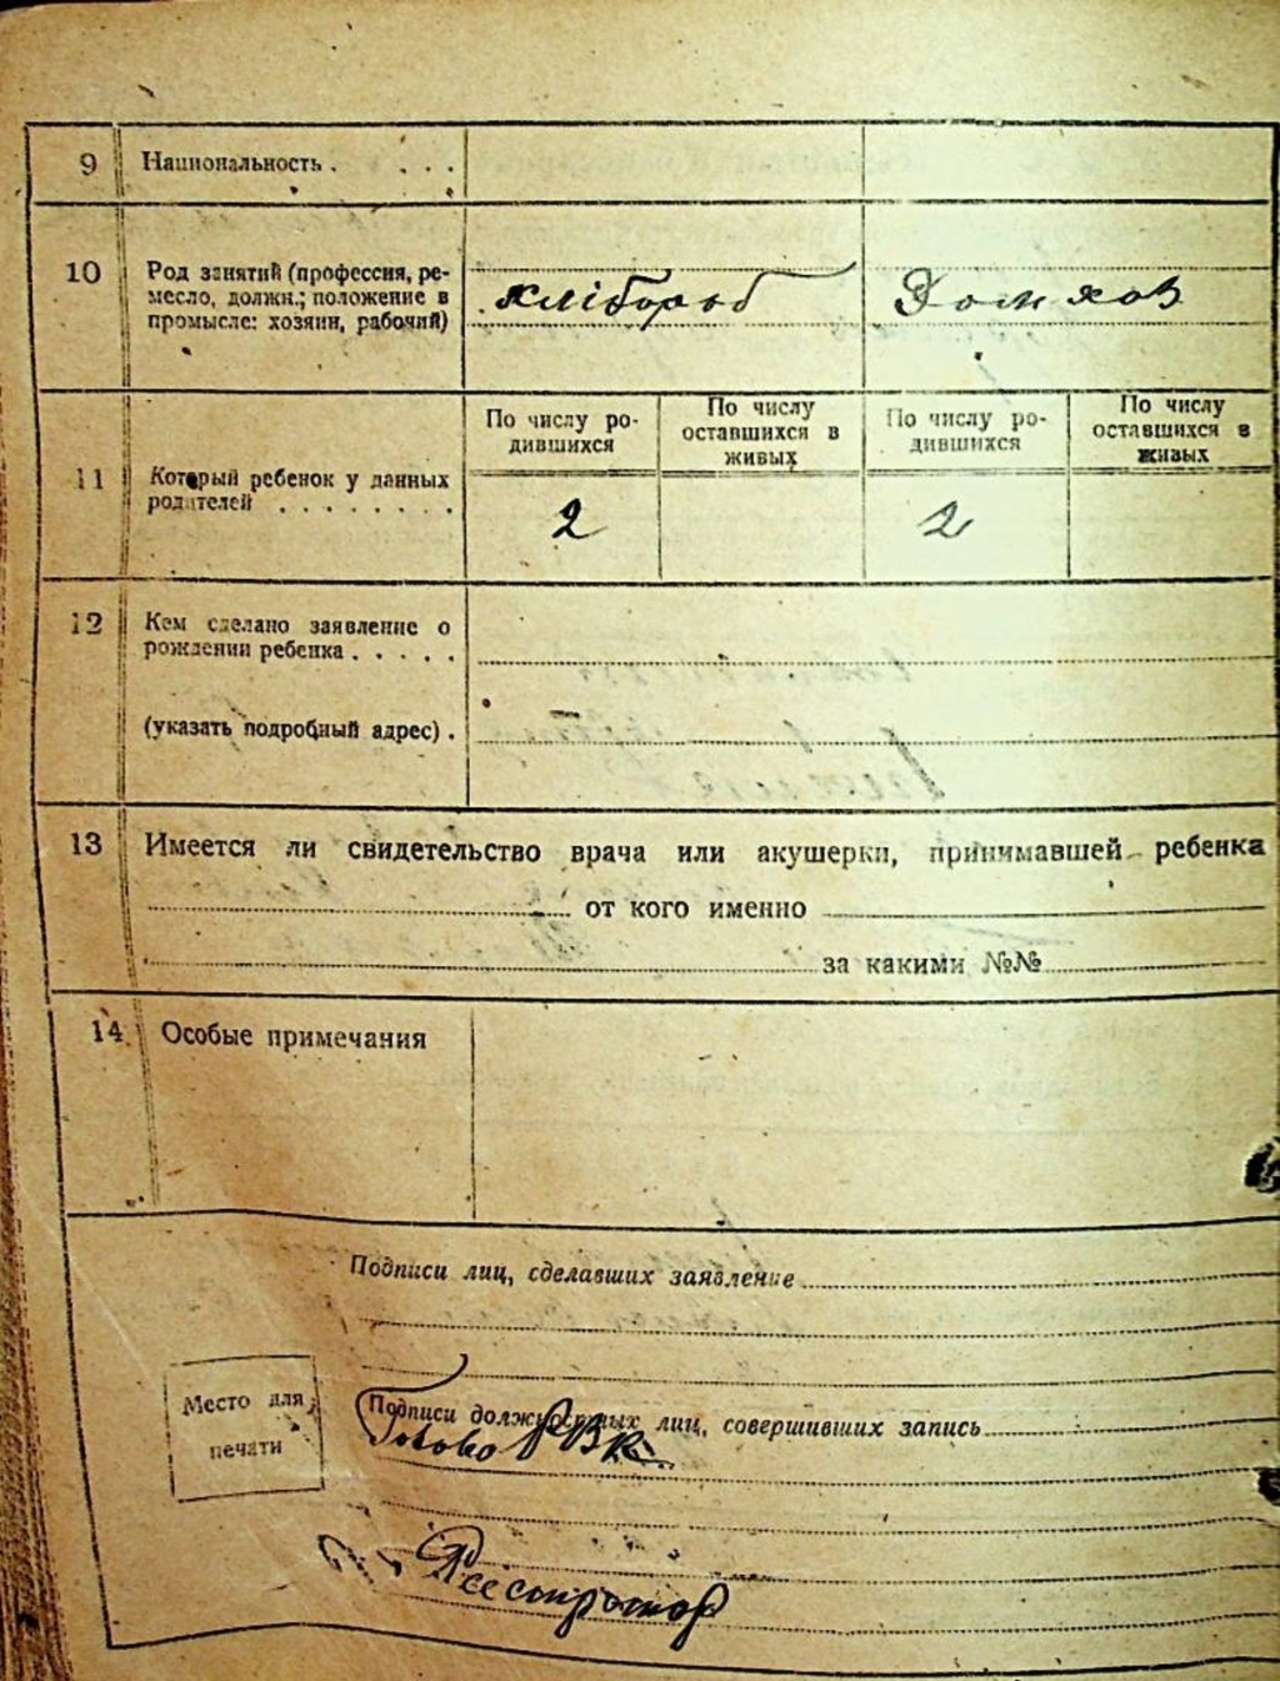 9 Национальность . . . .
10 Род занятий (профессия, ре-
месло, должн.; положение в
промысле: хозяин, рабочий)
хлібороб
Домхоз
11 Который ребенок у данных
родителей . . . . . . . .
По числу ро-
дившихся
По числу
оставшихся в
живых
По числу ро-
дившихся
По числу
оставшихся в
живых
2
2
12 Кем сделано заявление о
рождении ребенка . . . . .
(указать подробный адрес) .
13 Имеется ли свидетельство врача или акушерки, принимавшей ребенка
от кого именно
за какими №№
14. Особые примечания
Подписи лиц, сделавших заявление
Место для
печати
Подписи должностных лиц, совершивших запись
Голова РВК